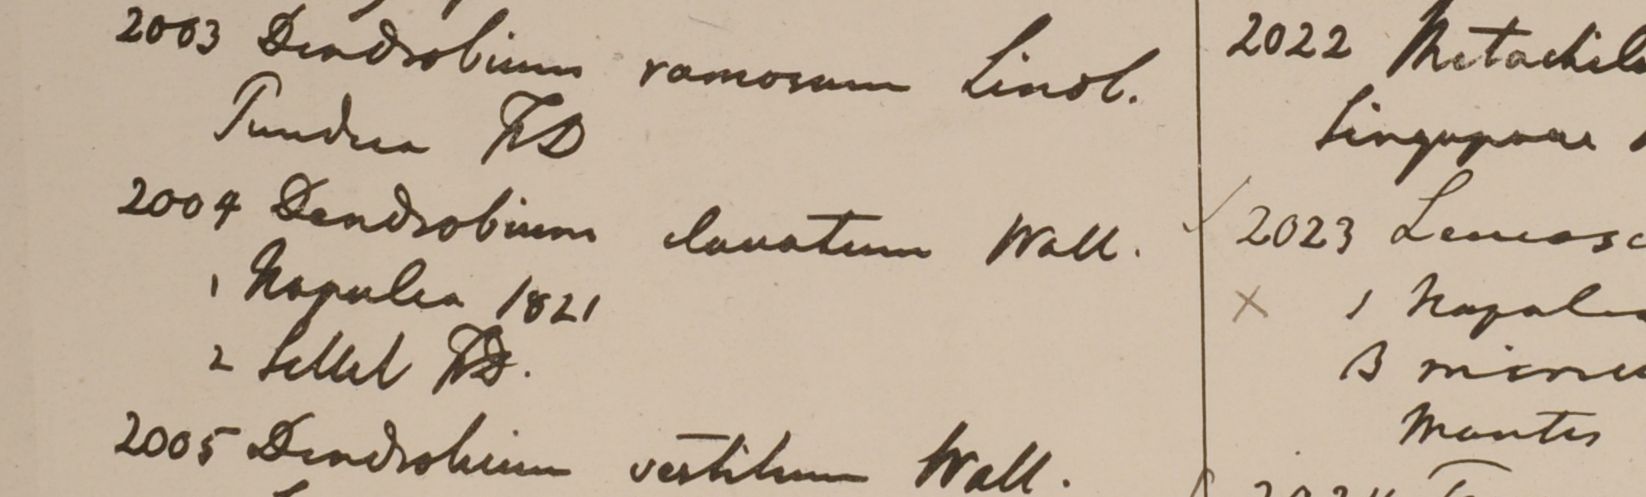 2003 Dendrobium ramosum Lindl.
Pundua FD
2004 Dendrobium clavatum Wall.
1 Napalia 1821
2 Sillet FD.
2005 Dendrobium vestitum Wall.
2022
Singapore
2023
1 Napal
β minor
Montis